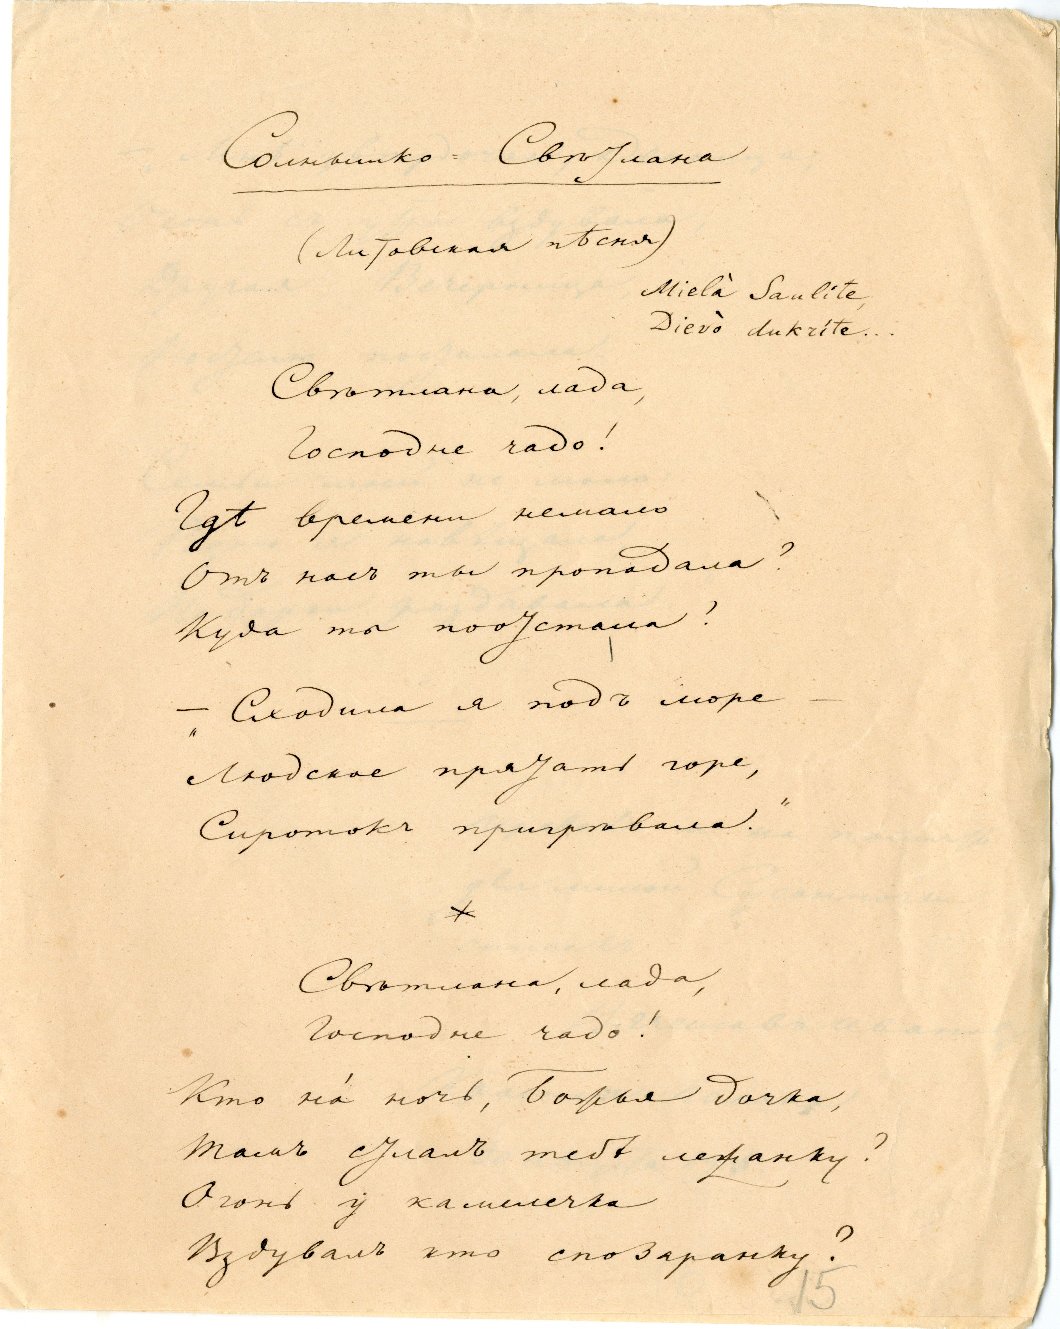 Солнышко = Свѣтлана
(Литовская пѣсня)
Mielà Saulíte,
Dievò dukríte...
Свѣтлана, лада,
Господне чадо!
Гдѣ времени немало
Отъ насъ ты пропадала?
Куда ты поотстала?
— Сходила я подъ море —
„Людское прятать горе,
Сиротокъ пригрѣвала.”
×
Свѣтлана, лада,
Господне чадо!
Кто нá ночь, Божья дочка,
Тамъ стлалъ тебѣ лежанку?
Огонь у камелечка
Вздувалъ кто спозаранку?
15